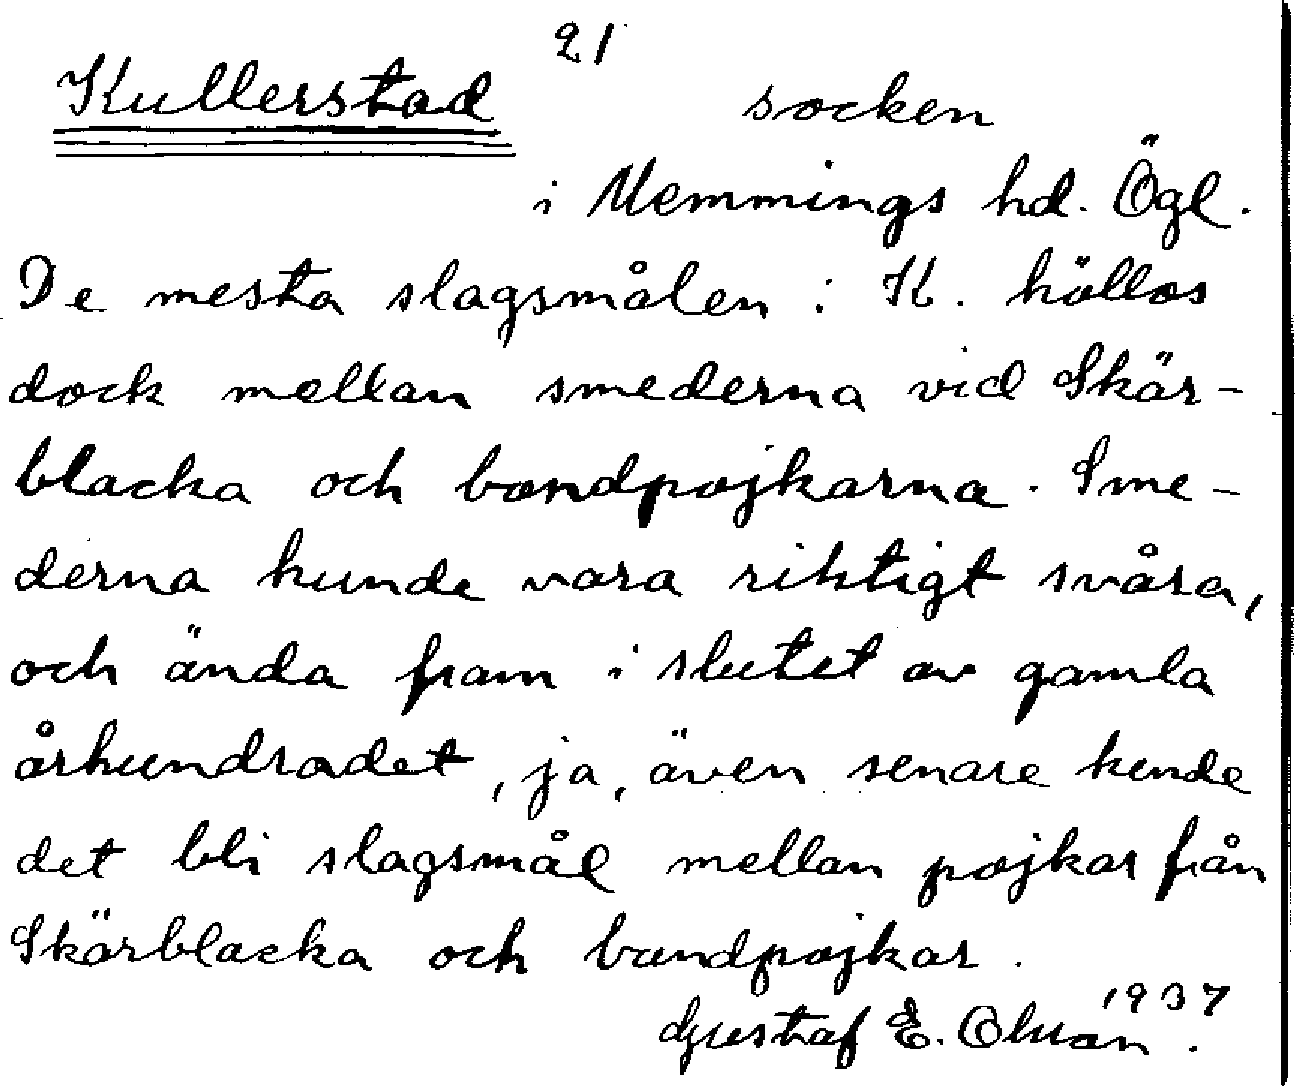 21
Kullerstad socken
i Memmings hd. Ögl.
De mesta slagsmålen i K. höllos
dock mellan smederna vid Skär-
blacka och bondpojkarna. Sme-
derna kunde vara riktigt svåra,
och ända fram i slutet av gamla
århundradet, ja, även senare kunde
det bli slagsmål mellan pojkar från
Skärblacka och bondpojkar.
1937
Gustaf E. Olman.